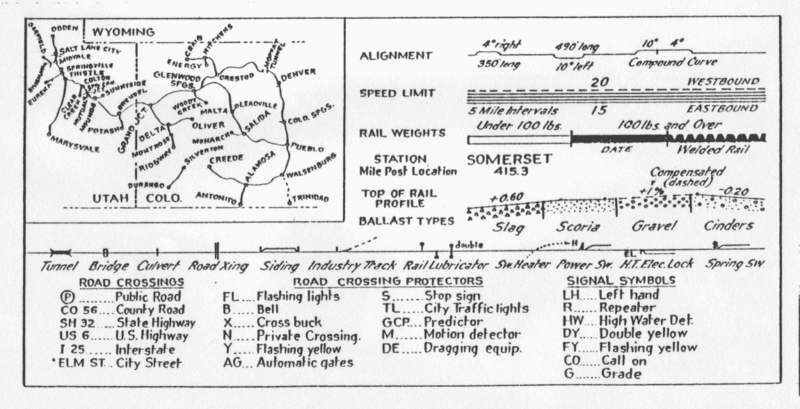 WYOMING
OGDEN
GARFIELD
SALT LAKE CITY
MIDVALE
SPRINGVILLE
THISTLE
COLTON
EUREKA
SUNNYSIDE
CLEAR CREEK
MOUNDS
BRENDEL
POTASH
MARYSVALE
GRAND JCT.
CRAIG
ENERGY
HITCHENS
GLENWOOD SPGS.
ORESTOD
MOFFAT TUNNEL
DENVER
WOODY CREEK
MALTA
LEADVILLE
DELTA
OLIVER
MONTROSE
MONARCH
SALIDA
COLO. SPGS.
RIDGWAY
SILVERTON
PUEBLO
CREEDE
DURANGO
ALAMOSA
WALSENBURG
ANTONITO
TRINIDAD
UTAH COLO.
ALIGNMENT
4° right 490' long 10° 4°
350' long 10° left Compound Curve
SPEED LIMIT
20 WESTBOUND
5 Mile Intervals 15 EASTBOUND
RAIL WEIGHTS
Under 100 lbs. 100 lbs. and Over
DATE Welded Rail
STATION SOMERSET
Mile Post Location 415.3
Compensated
(dashed)
TOP OF RAIL
PROFILE
+0.60 +1% -0.20
BALLAST TYPES
Slag Scoria Gravel Cinders
double H E.L.
Tunnel Bridge Culvert Road Xing Siding Industry Track Rail Lubricator Sw. Heater Power Sw. H.T. Elec. Lock Spring Sw.
ROAD CROSSINGS
P Public Road
CO 56 County Road
SH 32 State Highway
US 6 U.S. Highway
I 25 Interstate
ELM ST. City Street
ROAD CROSSING PROTECTORS
FL Flashing lights
B Bell
X Cross buck
N Private Crossing.
Y Flashing yellow
AG Automatic gates
S Stop sign
TL City Traffic lights
GCP Predictor
M Motion detector
DE Dragging equip.
SIGNAL SYMBOLS
LH Left hand
R Repeater
HW High Water Det.
DY Double yellow
FY Flashing yellow
CO Call on
G Grade